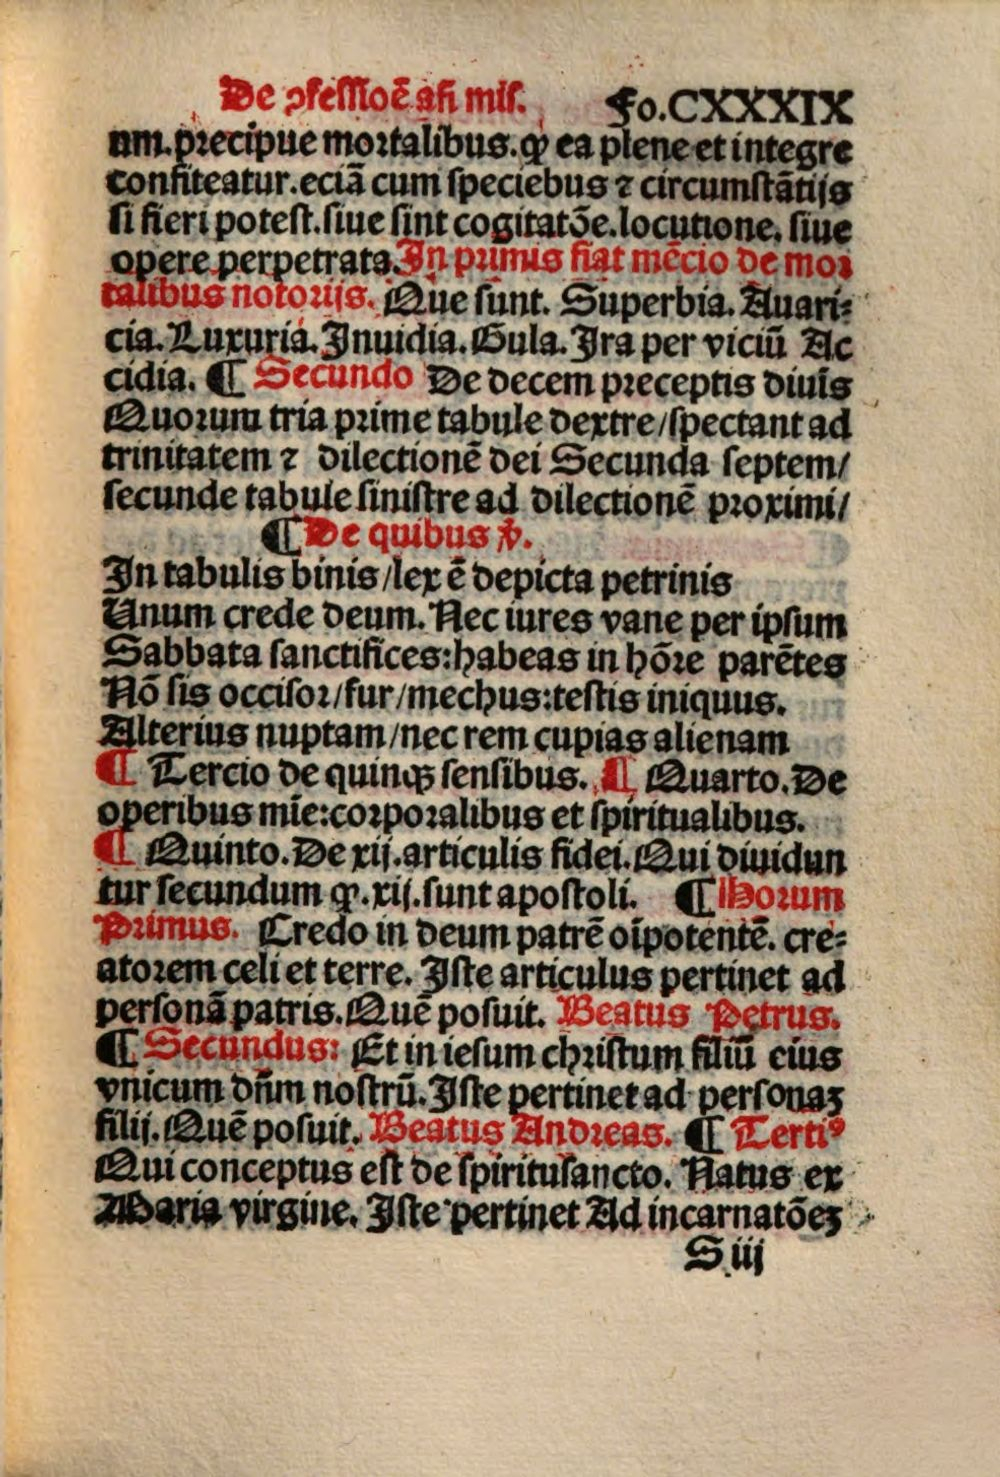 De ↄfessioē añ mis. Fo.CXXXIX
um.precipue mortalibus.ꝙ ea plene et integre
confiteatur.eciā cum speciebus ⁊ circumstātijs
si fieri potest.siue sint cogitatōe.locutione. siue
opere perpetrata.In primis fiat mēcio de mor
talibus notorijs. Que sunt. Superbia. Auari⸗
cia. Luxuria. Inuidia. Gula. Ira per viciū Ac
cidia. ¶ Secundo De decem preceptis diuīs
Quorum tria prime tabule dextre/spectant ad
trinitatem ⁊ dilectionē dei Secunda septem/
secunde tabule sinistre ad dilectionē proximi/
¶ De quibus ꝟ.
In tabulis binis/lex ē depicta petrinis
Unum crede deum. Nec iures vane per ipsum
Sabbata sanctifices:habeas in hōre parētes
Nō sis occisor/fur/mechus:testis iniquus.
Alterius nuptam/nec rem cupias alienam
¶ Tercio de quinqꝫ sensibus. ¶ Quarto. De
operibus mīe:corporalibus et spiritualibus.
¶ Quinto. De xij.articulis fidei. Qui diuidun
tur secundum ꝙ.xij.sunt apostoli. ¶ Horum
Primus. Credo in deum patrē oīpotentē. cre⸗
atorem celi et terre. Iste articulus pertinet ad
personā patris. Quē posuit. Beatus Petrus.
¶ Secundus: Et in iesum christum filiū eius
vnicum dn̄m nostrū. Iste pertinet ad personaꝫ
filij. Quē posuit. Beatus Andreas. ¶ Tertiꝰ
Qui conceptus est de spiritusancto. Natus ex
Maria virgine. Iste pertinet Ad incarnatōeꝫ
S iij